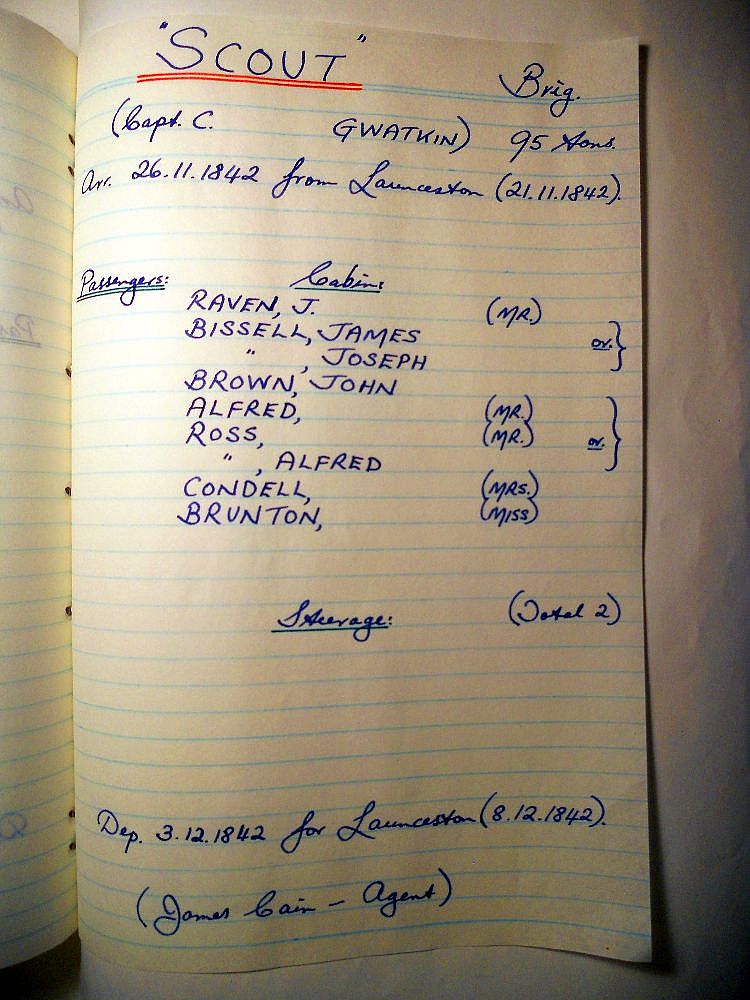 "SCOUT"
Brig.
(Capt. C. GWATKIN) 95 tons.
Arr. 26.11.1842 from Launceston (21.11.1842).
Passengers: Cabin:
RAVEN, J. (MR.)
BISSELL, JAMES
" , JOSEPH or. }
BROWN, JOHN
ALFRED, (MR.)
ROSS, (MR.)
" , ALFRED or. }
CONDELL, (MRS.)
BRUNTON, (MISS)
Steerage: (Total 2)
Dep. 3.12.1842 for Launceston (8.12.1842).
(James Cain - Agent)